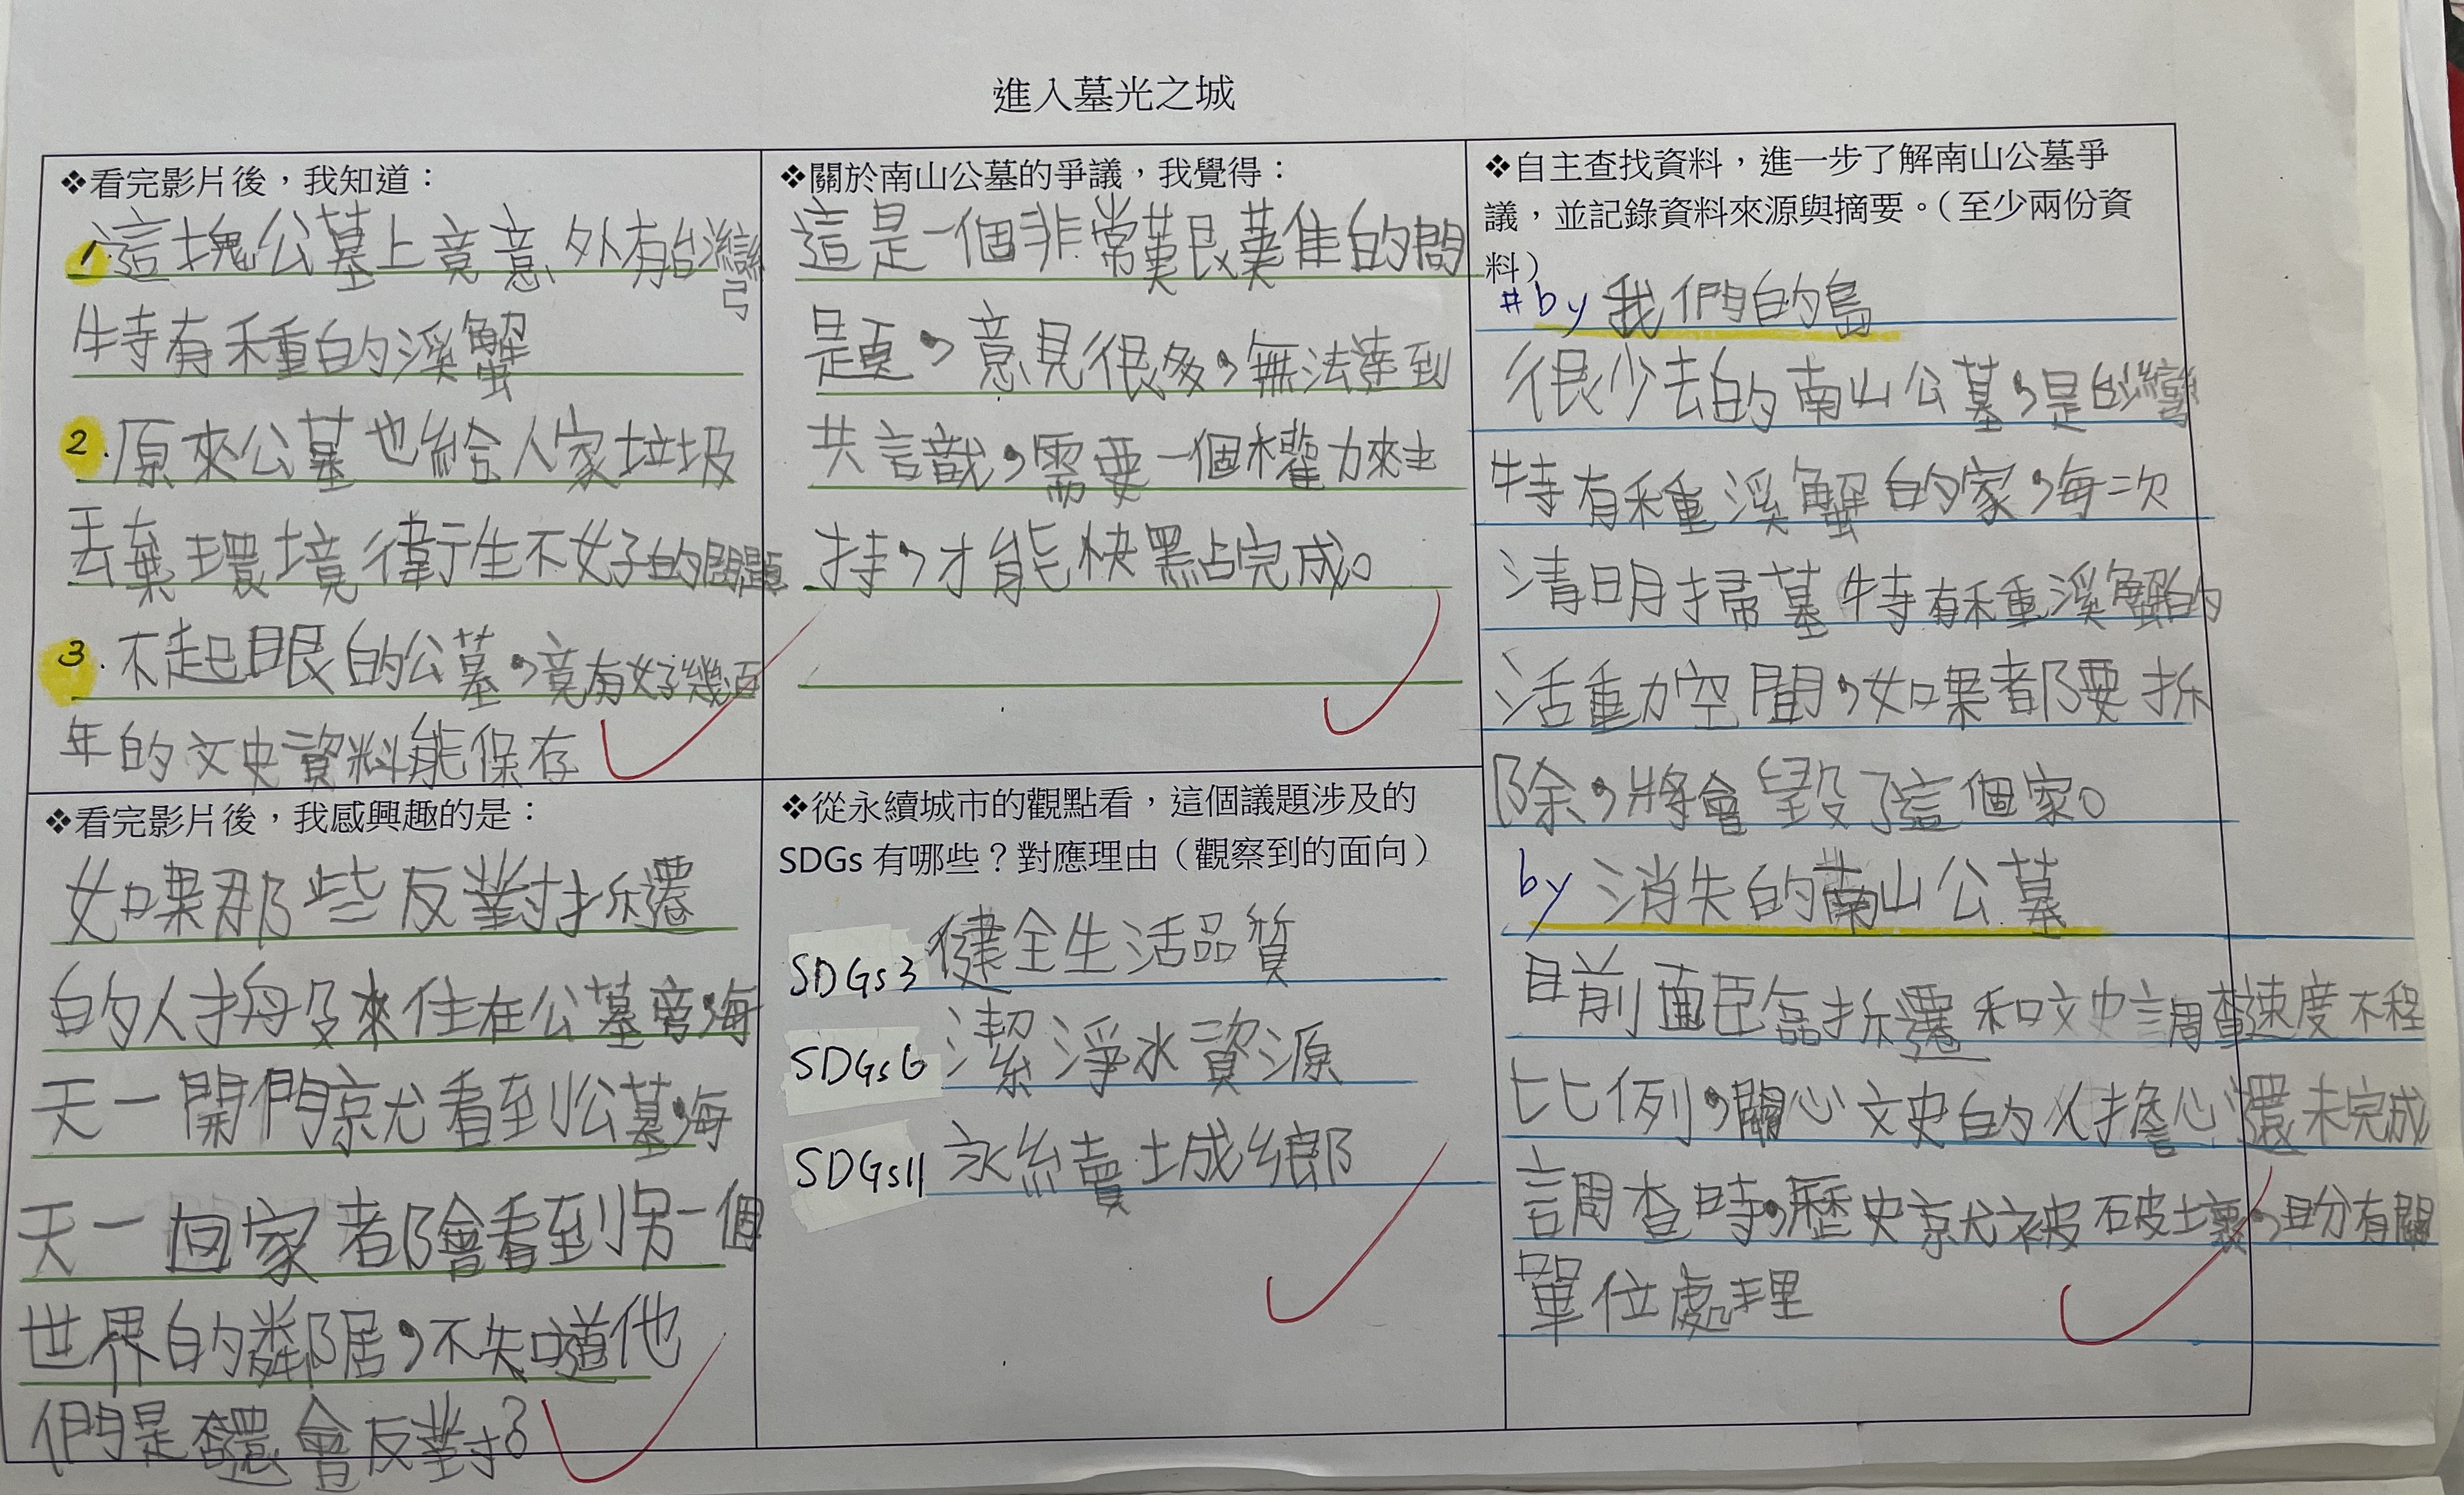 進入墓光之城
❖看完影片後，我知道：
1.這塊公墓上竟意外有台灣
特有種的溪蟹
2.原來公墓也給人家垃圾
丟棄環境衛生不好的問題
3.不起眼的公墓，竟有好幾百
年的文史資料能保存
❖關於南山公墓的爭議，我覺得：
這是一個非常艱難的問
題，意見很多，無法達到
共識，需要一個權力來主
持，才能快點完成。
❖看完影片後，我感興趣的是：
如果那些反對拆遷
的人搬來住在公墓旁，每
天一開門就看到公墓，每
天一回家都會看到另一個
世界的鄰居，不知道他
們是否還會反對？
❖從永續城市的觀點看，這個議題涉及的
SDGs 有哪些？對應理由（觀察到的面向）
SDGs3 健全生活品質
SDGs6 潔淨水資源
SDGs11 永續城鄉
❖自主查找資料，進一步了解南山公墓爭
議，並記錄資料來源與摘要。（至少兩份資
料）
#by 我們的島
很少去的南山公墓，是台灣
特有種溪蟹的家，每次
清明掃墓特有種溪蟹的
活動空間，如果都要拆
除，將會毀了這個家。
by 消失的南山公墓
目前面臨拆遷和文史調查速度不程
比例，關心文史的人擔心還未完成
調查時，歷史就被破壞，盼有關
單位處理